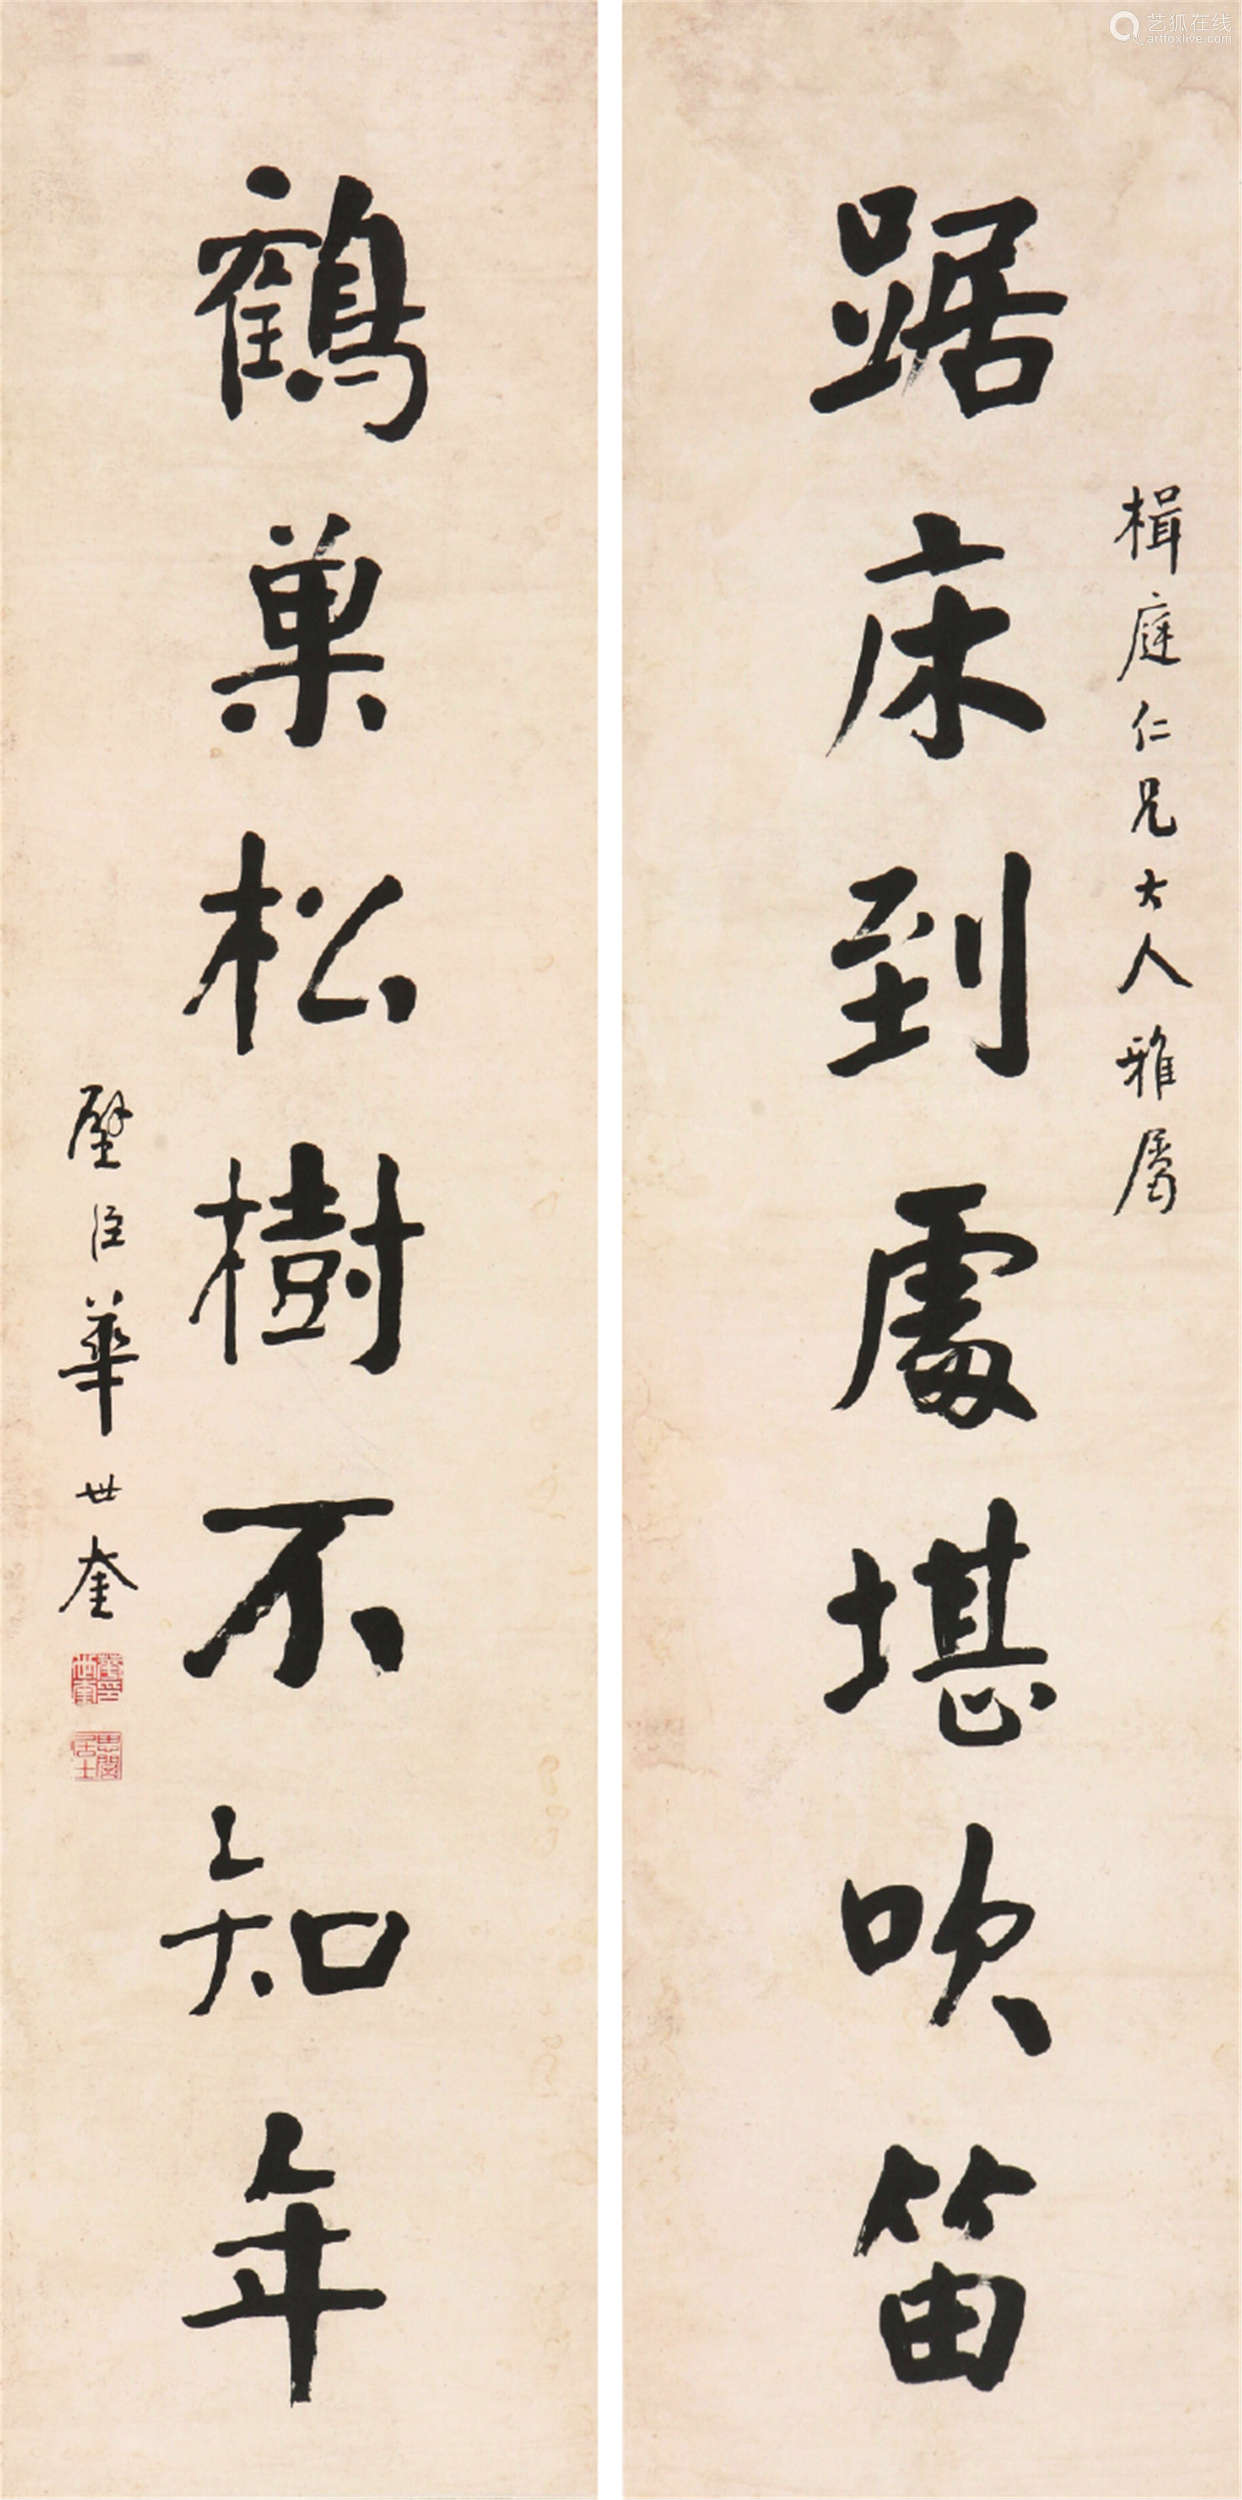 楫庭仁兄大人雅屬
踞床到處堪吹笛
鶴巢松樹不知年
璧臣華世奎
艺狐在线
artfoxlive.com